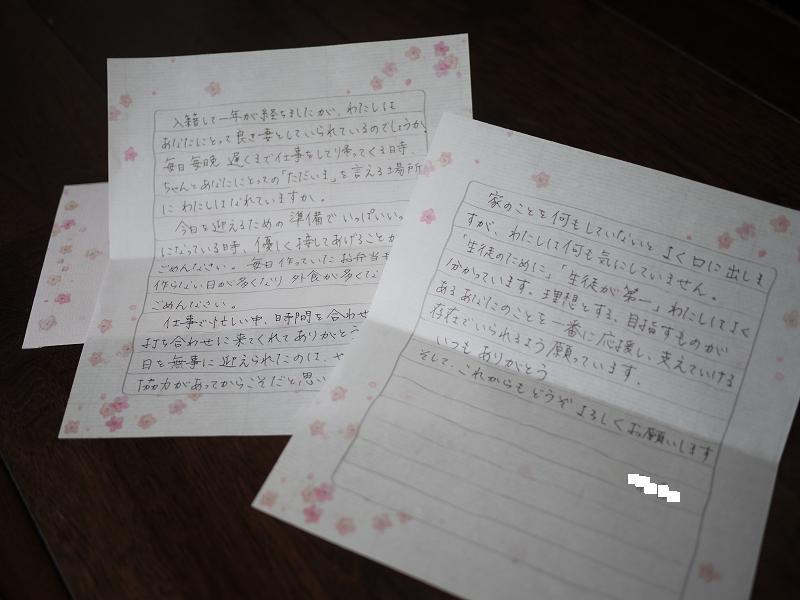 入籍して一年が経ちましたが、わたしは
あなたにとって良き妻としていられているのでしょうか。
毎日毎晩 遅くまで仕事をして帰ってくる時、
ちゃんとあなたにとっての「ただいま」を言える場所
に わたしはなれていますか。
今日を迎えるための 準備で いっぱいいっ
になっている時、優しく接してあげることが
ごめんなさい。毎日作っていたお弁当も
作らない日が多くなり 外食が多くな
ごめんなさい。
仕事で忙しい中、時間を合わせ
打ち合わせに来てくれてありがとう
日を無事に迎えられたのは、
協力があってからこそだと思い
家のことを何もしていないと よく口に出しま
すが、わたしは何も気にしていません。
「生徒のために」「生徒が第一」わたしはよく
分かっています。理想とする、目指すものが
あるあなたのことを一番に応援し、支えていける
存在でいられるよう願っています。
いつも ありがとう
そして、これからも どうぞ よろしく お願いします